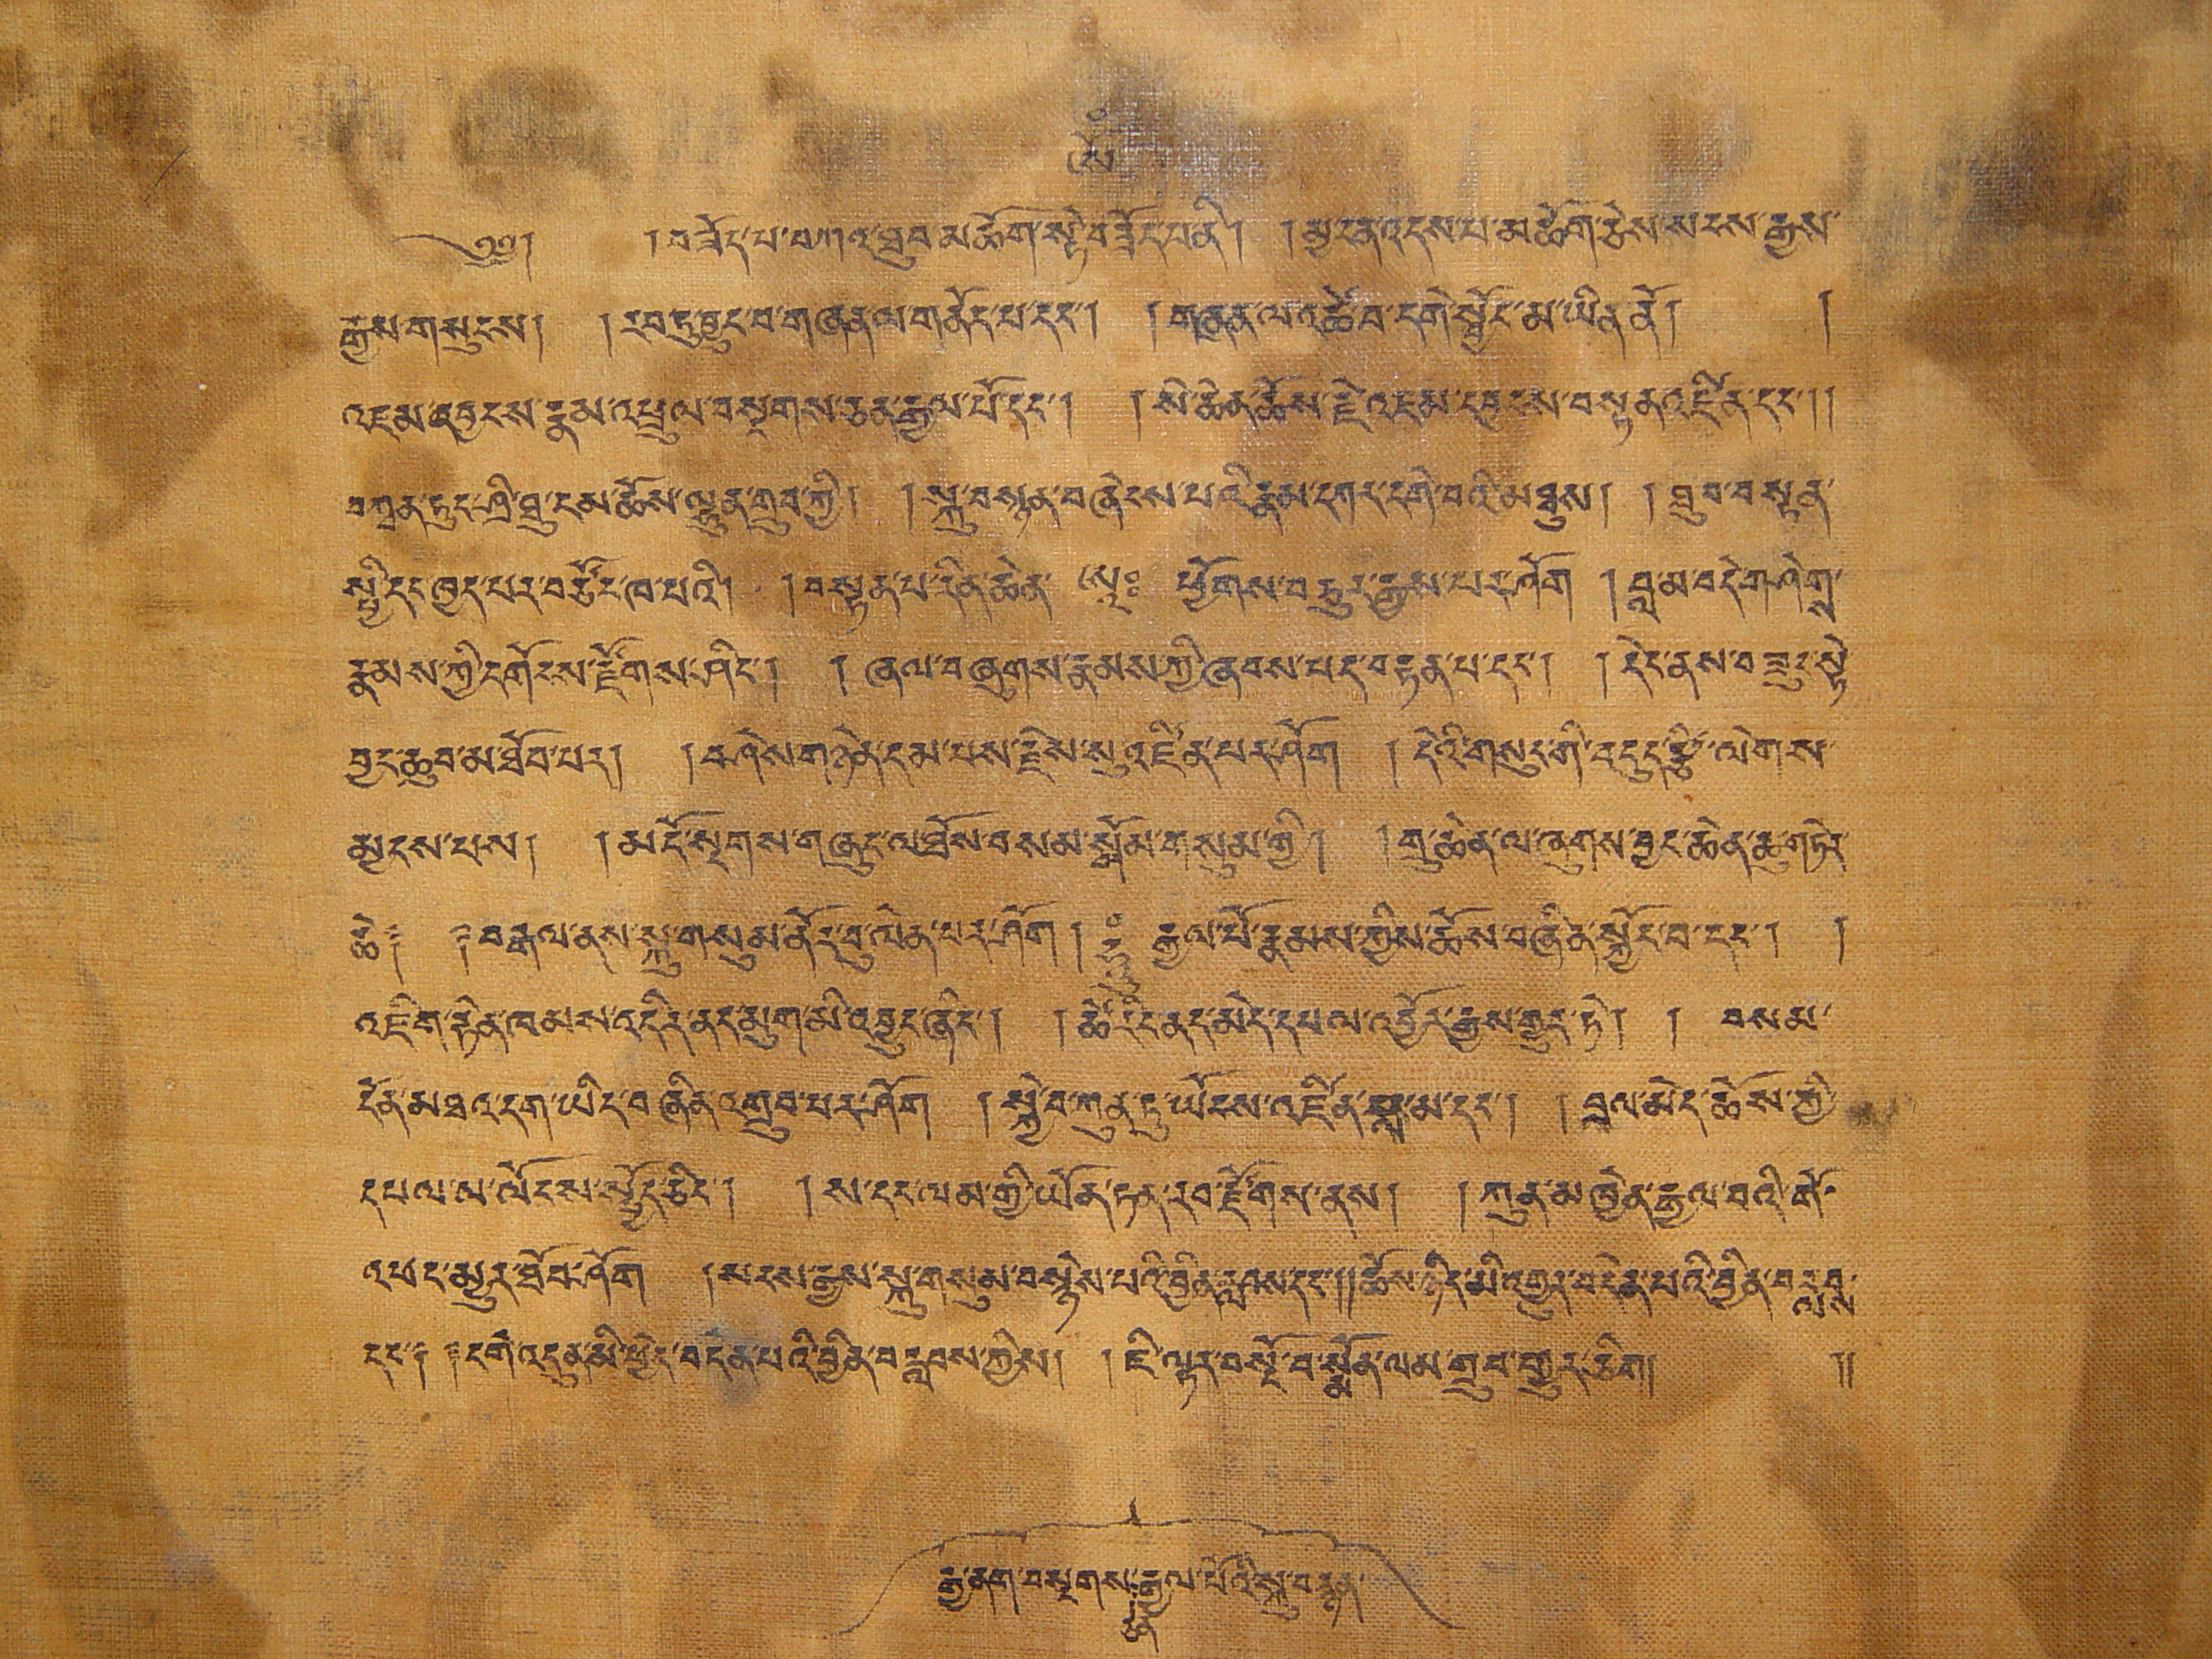 ཨོཾ
༄༅། །བཟོད་པ་དཀའ་ཐུབ་མཆོག་སྟེ་བཟོད་པ་ནི། །མྱ་ངན་འདས་པ་མཆོག་ཅེས་སངས་རྒྱས་
རྒྱས་གསུངས། །རབ་ཏུ་བྱུང་བ་གཞན་ལ་གནོད་པ་དང་། །གཞན་ལ་འཚེ་བ་དགེ་སྦྱོང་མ་ཡིན་ནོ། །
འཇམ་དབྱངས་རྣམ་འཕྲུལ་བསྔགས་ཅན་རྒྱལ་པོ་དང་། །ས་ཆེན་ཆོས་རྗེ་འཇམ་དབྱངས་བསྟན་འཛིན་དང་།།
བཀྲན་ཏུང་ཤྲཱི་ཐུ་ དམ་ཆོས་ལྷུན་གྲུབ་ཀྱི། །སྐུ་བསྟན་བཞེངས་པའི་རྣམ་དཀར་དགེ་བའི་མཐུས། །ཐུབ་བསྟན་
སྤྱི་དང་ཁྱད་པར་བཙོང་ཁ་པའི། །བསྟན་པ་རིན་ཆེན་ ཨཱཿ ཕྱོགས་བཅུར་རྒྱས་པར་ཤོག །བླ་མ་བདེ་གཤེགས་
རྣམས་ཀྱི་དགོངས་རྫོགས་ཤིང་། །ཞལ་བཞུགས་རྣམས་ཀྱི་ཞབས་པད་བརྟན་པ་དང་། །དེང་ནས་བཟུང་སྟེ་
བྱང་ཆུབ་མ་ཐོབ་པར། །བཤེས་གཉེན་དམ་པས་རྗེས་སུ་འཛིན་པར་ཤོག །དེའི་གསུང་གི་བདུད་རྩི་ལེགས་
མྱངས་པས། །མདོ་སྔགས་གཞུང་ལ་ཐོས་བསམ་སྒོམ་གསུམ་གྱི། །གྲུ་ཆེན་ལ་ཞུགས་བྱང་ཆེན་ཆུ་གཏེར་
ཆེ༔ ༔བརྒལ་ནས་སྐུ་གསུམ་ནོར་བུ་ལེན་པར་ཤོག། ཧཱུྃ རྒྱལ་པོ་རྣམས་ཀྱིས་ཆོས་བཞིན་སྐྱོང་བ་དང་། །
འཇིག་རྟེན་ཁམས་འདིར་ནད་མུག་མི་འབྱུང་ཞིང་། །ཚེ་རིང་ནད་མེད་དཔལ་འབྱོར་རྒྱས་གྱུར་ཏེ། །བསམ་
དོན་མཐའ་དག་ཡིད་བཞིན་འགྲུབ་པར་ཤོག །སྐྱེ་བ་ཀུན་ཏུ་ཡོངས་འཛིན་བླ་མ་དང་། །བྲལ་མེད་ཆོས་ཀྱི་
དཔལ་ལ་ལོངས་སྤྱོད་ཅིང་། །ས་དང་ལམ་གྱི་ཡོན་ཏན་རབ་རྫོགས་ནས། །ཀུན་མཁྱེན་རྒྱལ་བའི་གོ་
འཕང་མྱུར་ཐོབ་ཤོག །སངས་རྒྱས་སྐུ་གསུམ་བརྙེས་པའི་བྱིན་རླབས་དང་།།ཆོས་ཉིད་མི་འགྱུར་བདེན་པའི་བྱིན་བརླབས་
དང་༔ ༔དགེ་འདུན་མི་ཕྱེད་བདེན་པའི་བྱིན་བརླབས་ཀྱིས། །ཇི་ལྟར་བསྔོ་བ་སྨོན་ལམ་གྲུབ་གྱུར་ཅིག །།
རྒྱ་ནག་བསྔགས་རྒྱལ་པོའི་སྐུ་བརྙན་